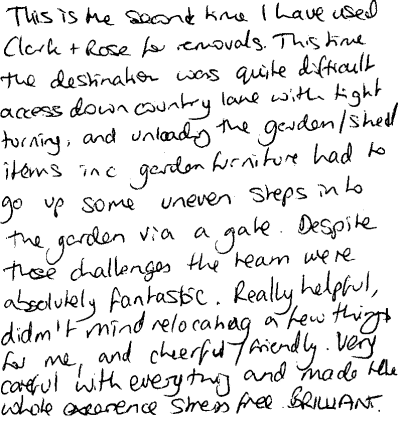 This is the second time I have used
Clark + Rose for removals. This time
the destination was quite difficult
access down country lane with tight
turning, and unloading the garden/shed
items inc garden furniture had to
go up some uneven steps into
the garden via a gate. Despite
these challenges the team were
absolutely fantastic. Really helpful,
didn't mind relocating a few things
for me, and cheerful/friendly. Very
careful with everything and made the
whole experience stress free. BRILLIANT.